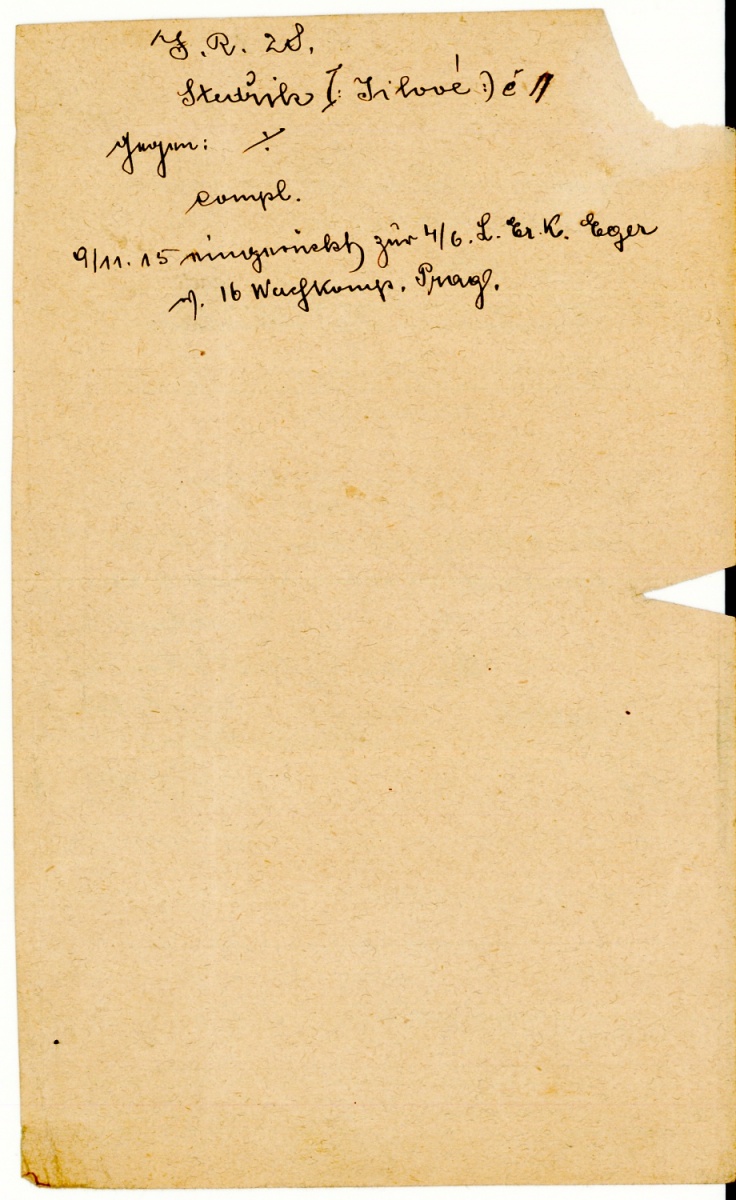 J. R. 28.
Studřik (: Jilové :) č 11
gegen: ./.
compl.
9/11. 15 eingerückt zur 4/6. L. Er. K. Eger
d. 16 Wachkomp. Prag.